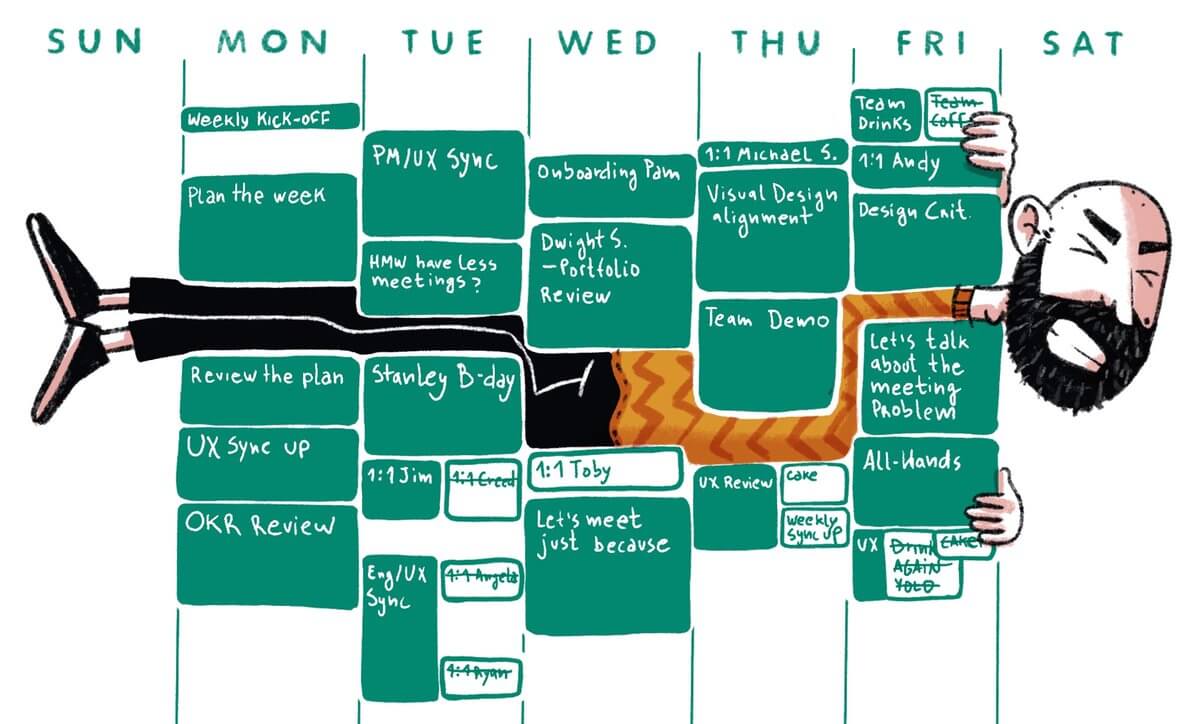 SUN
MON
TUE
WED
THU
FRI
SAT
Weekly Kick-off
Plan the week
Review the plan
UX Sync up
OKR Review
PM/UX Sync
HMW have less
meetings?
Stanley B-day
1:1 Jim
1:1 Creed
Eng/UX
Sync
1:1 Angela
1:1 Ryan
Onboarding Pam
Dwight S.
–Portfolio
Review
1:1 Toby
Let's meet
just because
1:1 Michael S.
Visual Design
alignment
Team Demo
UX Review
cake
weekly
sync up
Team
Drinks
Team
Coff
1:1 Andy
Design Crit.
Let's talk
about the
meeting
Problem
All-Hands
UX
Drink
AGAIN
YOLO
CAKE!